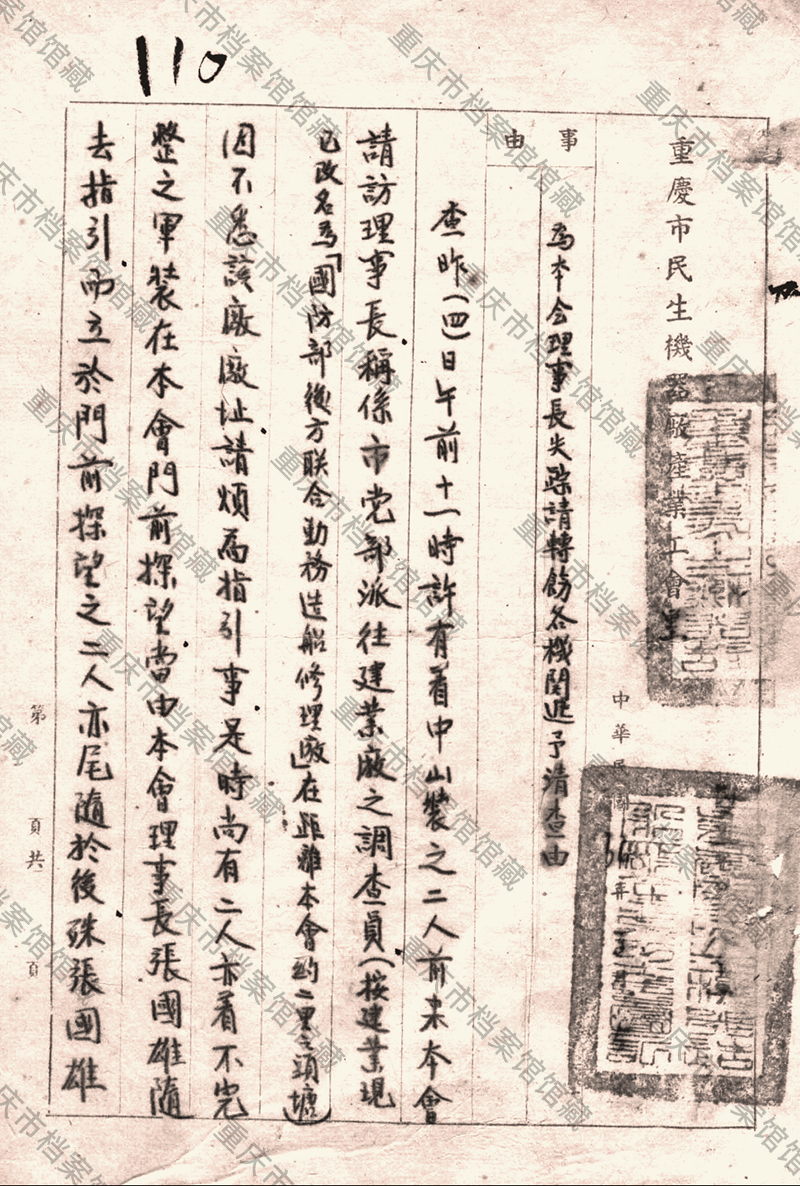 110
重慶市民生機器廠產業工會呈
中華民國36年五月
事由
為本会理事長失踪請轉飭各機関進予清查由
查昨(四)日午前十一時許有着中山裝之二人前来本會
請訪理事長稱係市党部派往建業廠之調查員(按建業現
已改名為「國防部後方联合勤務造船修理廠」在距離本會約二里之頭塘)
因不悉該廠廠址請煩為指引事是時尚有二人亦着不完
整之軍裝在本會門前探望當由本會理事長張國雄隨
去指引而立於門前探望之二人亦尾隨於後殊張國雄
第 頁共 頁
重庆市档案馆馆藏